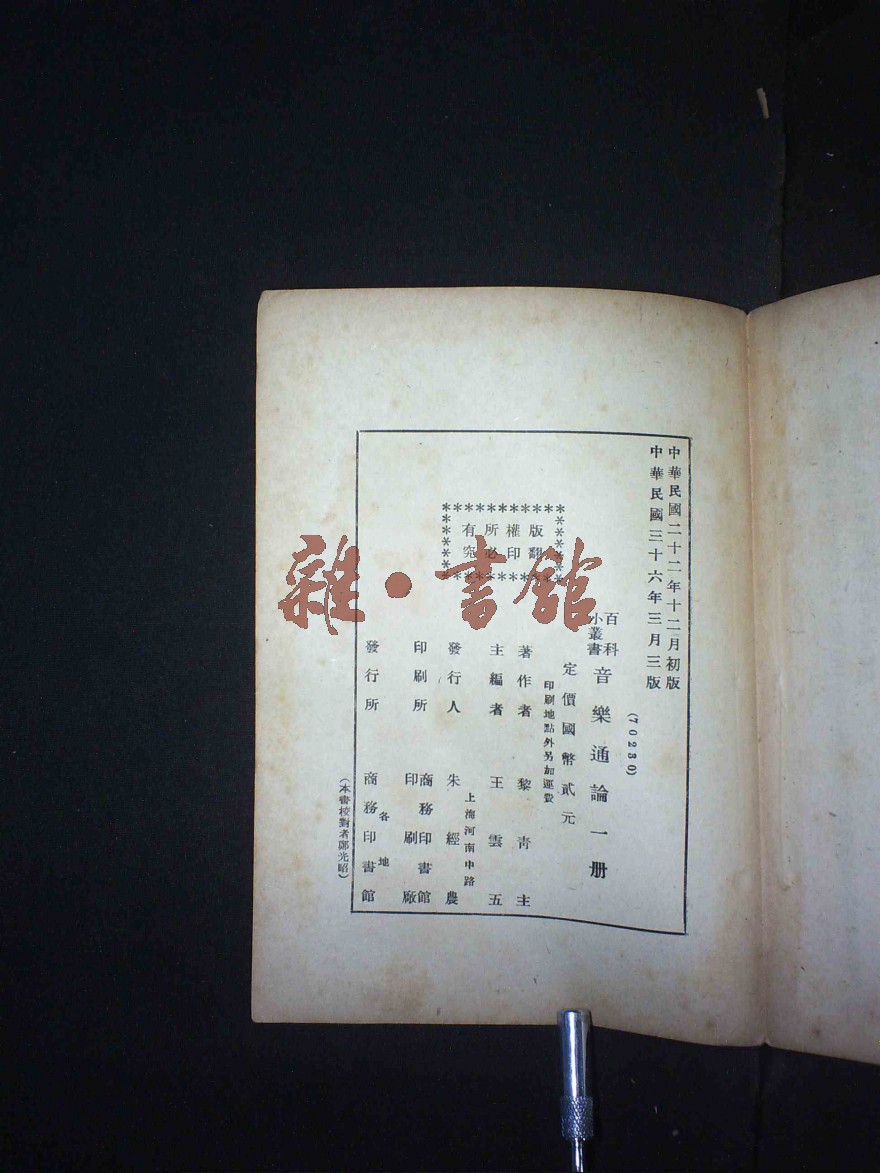 中華民國二十二年十二月初版
中華民國三十六年三月三版
(70230)
百科
小叢書
音樂通論一册
定價國幣貳元
印刷地點外另加運費
版權所有
翻印必究
著作者 黎青主
主編者 王雲五
上海河南中路
發行人 朱經農
印刷所 商務印書館
印刷廠
各地
發行所 商務印書館
(本書校對者鄭光昭)
雜·書館